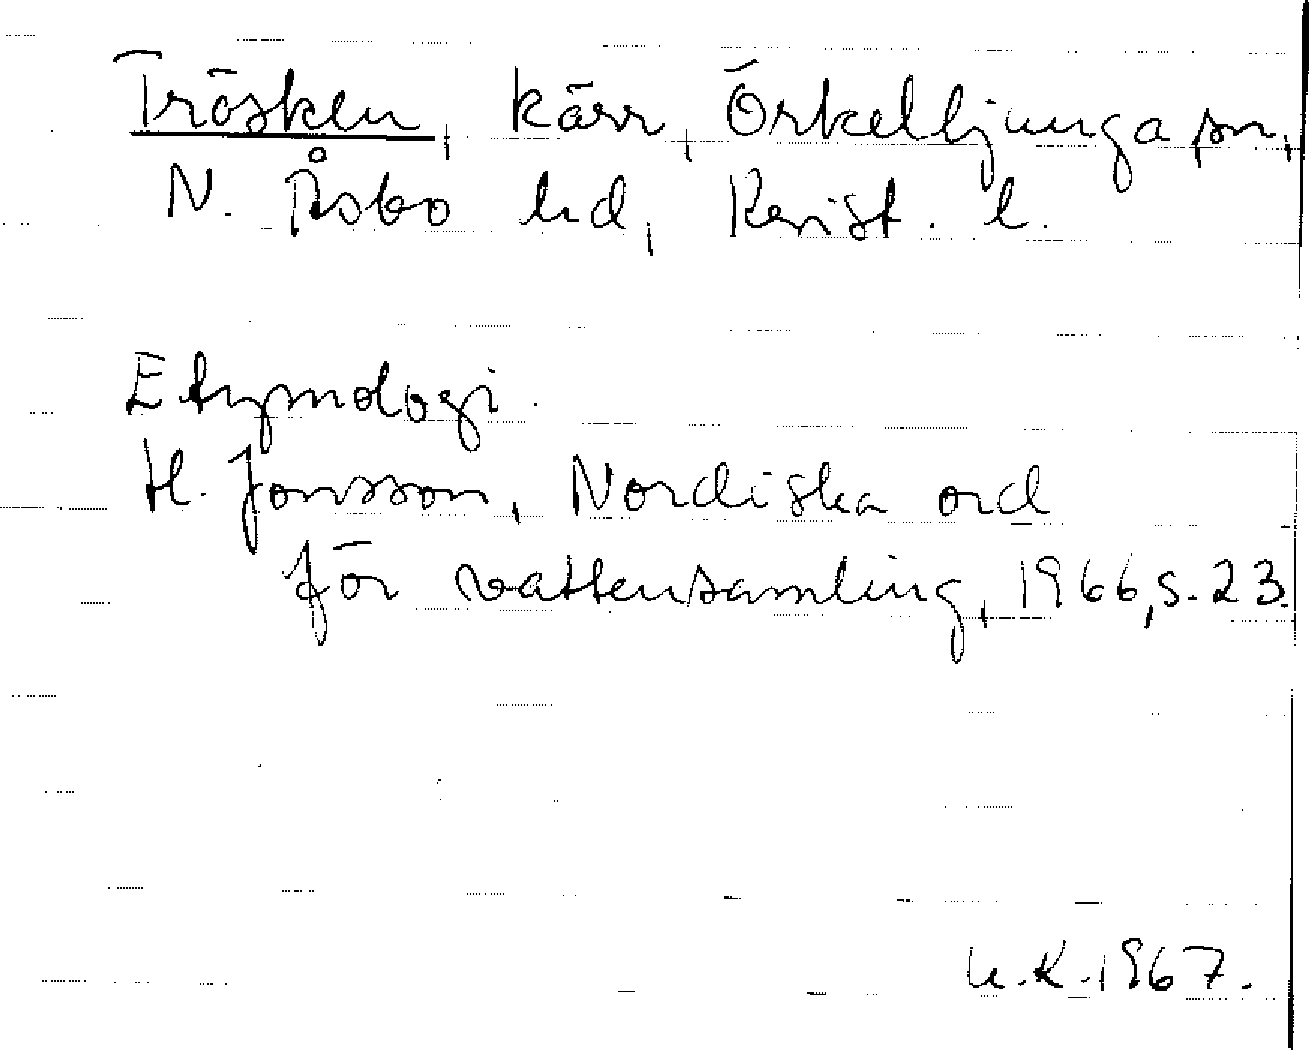 Trösken, kärr, Örkelljunga sn,
N. Åsbo hd, Krist. l.
Etymologi.
H. Jonsson, Nordiska ord
för vattensamling, 1966, s. 23.
U.K. 1967.